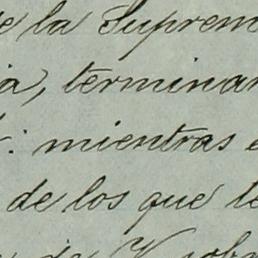 de la Suprem
ia, terminan
: mientras e
de los que te